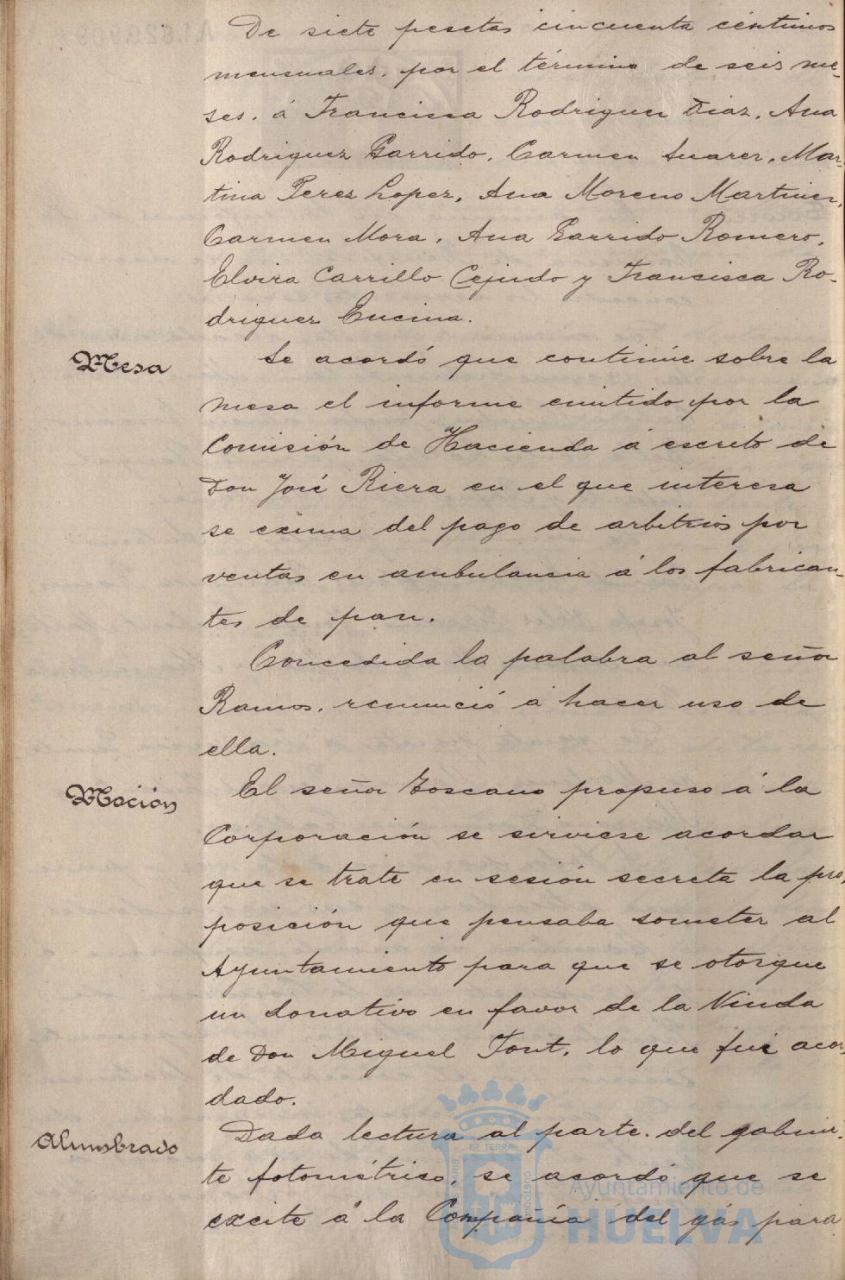 De siete pesetas cincuenta céntimos
mensuales, por el término de seis me-
ses, á Francisca Rodriguez Diaz, Ana
Rodriguez Garrido, Carmen Suarez, Mar-
tina Perez Lopez, Ana Moreno Martinez,
Carmen Mora, Ana Garrido Romero,
Elvira Carrillo Cejudo y Francisca Ro-
driguez Encina.
Mesa
Se acordó que continúe sobre la
mesa el informe emitido por la
Comisión de Hacienda á escrito de
Don José Riera en el que interesa
se exima del pago de arbitrios por
ventas en ambulancia á los fabrican-
tes de pan.
Concedida la palabra al señor
Ramos, renunció á hacer uso de
ella.
Moción
El señor Toscano propuso á la
Corporación se sirviese acordar
que se trate en sesión secreta la pro-
posición que pensaba someter al
Ayuntamiento para que se otorgue
un donativo en favor de la Viuda
de Don Miguel Font, lo que fué acor-
dado.
Alumbrado
Dada lectura al parte del gabine-
te fotométrico, se acordó que se
excite á la Compañía del gás para
Ayuntamiento de
HUELVA